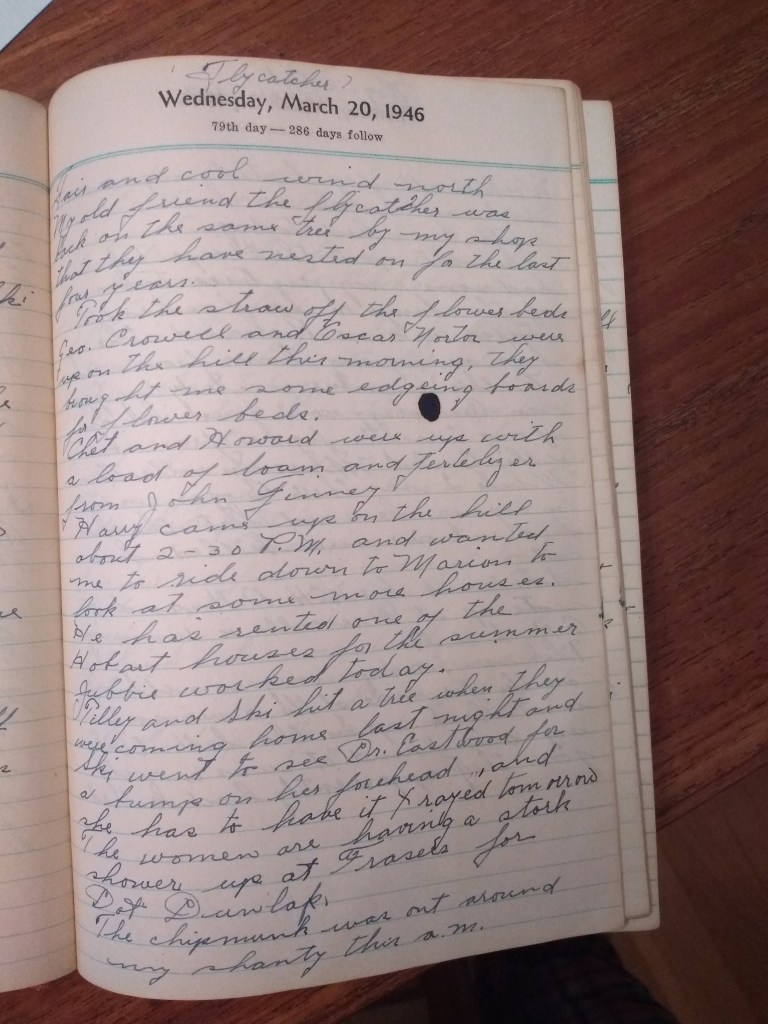 Flycatcher?
Wednesday, March 20, 1946
79th day — 286 days follow
Fair and cool wind north
My old friend the flycatcher was
back on the same tree by my shop
that they have nested on fo the last
four years.
Took the straw off the flower beds
Geo. Crowell and Oscar Norton were
up on the hill this morning, they
brought me some edgeing boards
for flower beds.
Chet and Howard were up with
a load of loam and fertelizer
from John Finney
Harry came up on the hill
about 2-30 P.M. and wanted
me to ride down to Marion to
look at some more houses.
He has rented one of the
Hobart houses for the summer
Jubbie worked today.
Tilly and Ski hit a tree when they
were coming home last night and
Ski went to see Dr. Eastwood for
a bump on her forehead, and
she has to have it Xrayed tomorrow
The women are having a stork
shower up at Frasers for
Dot Dunlap.
The chipmunk was out around
my shanty this a.m.